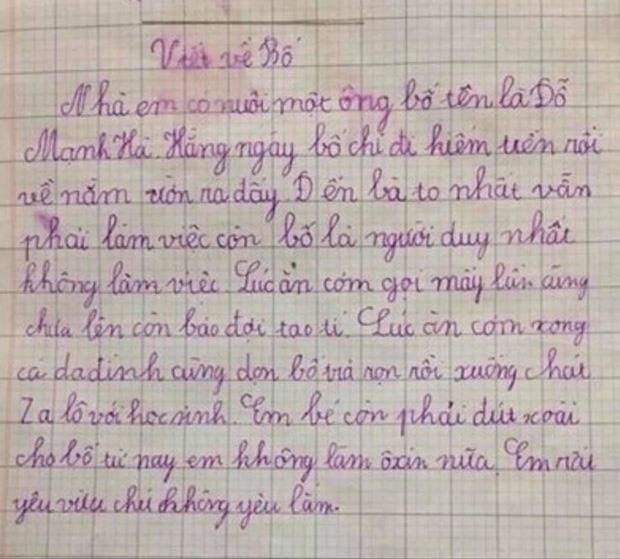 Viết về Bố
Nhà em có nuôi một ông bố tên là Đỗ
Mạnh Hà. Hằng ngày bố chỉ đi kiếm tiền rồi
về nằm ườn ra đấy. Đến bà to nhất vẫn
phải làm việc còn bố là người duy nhất
không làm việc. Lúc ăn cơm gọi mấy lần cũng
chưa lên còn bảo đợi tao tí. Lúc ăn cơm xong
cả dađình cùng dọn bố trả rọn rồi xuống chát
Za lô với học sinh. Em bé còn phải đút xoài
cho bố từ nay em không làm ôxin nữa. Em rất
yêu chứ không yêu lắm.